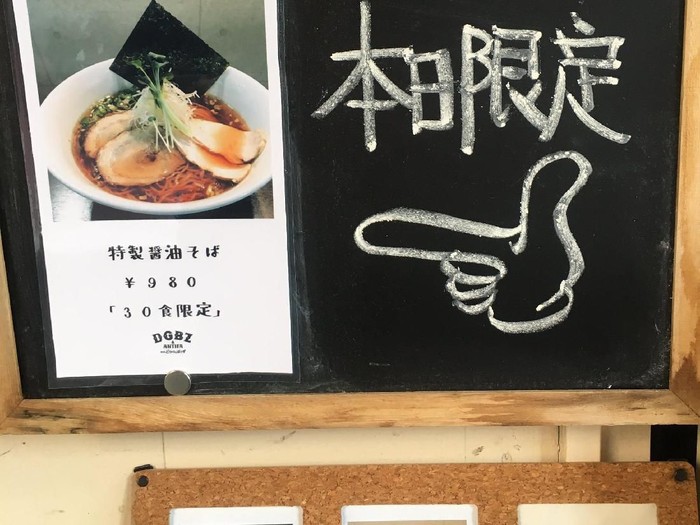 本日限定
特製醤油そば
¥980
「30食限定」
DGBZ